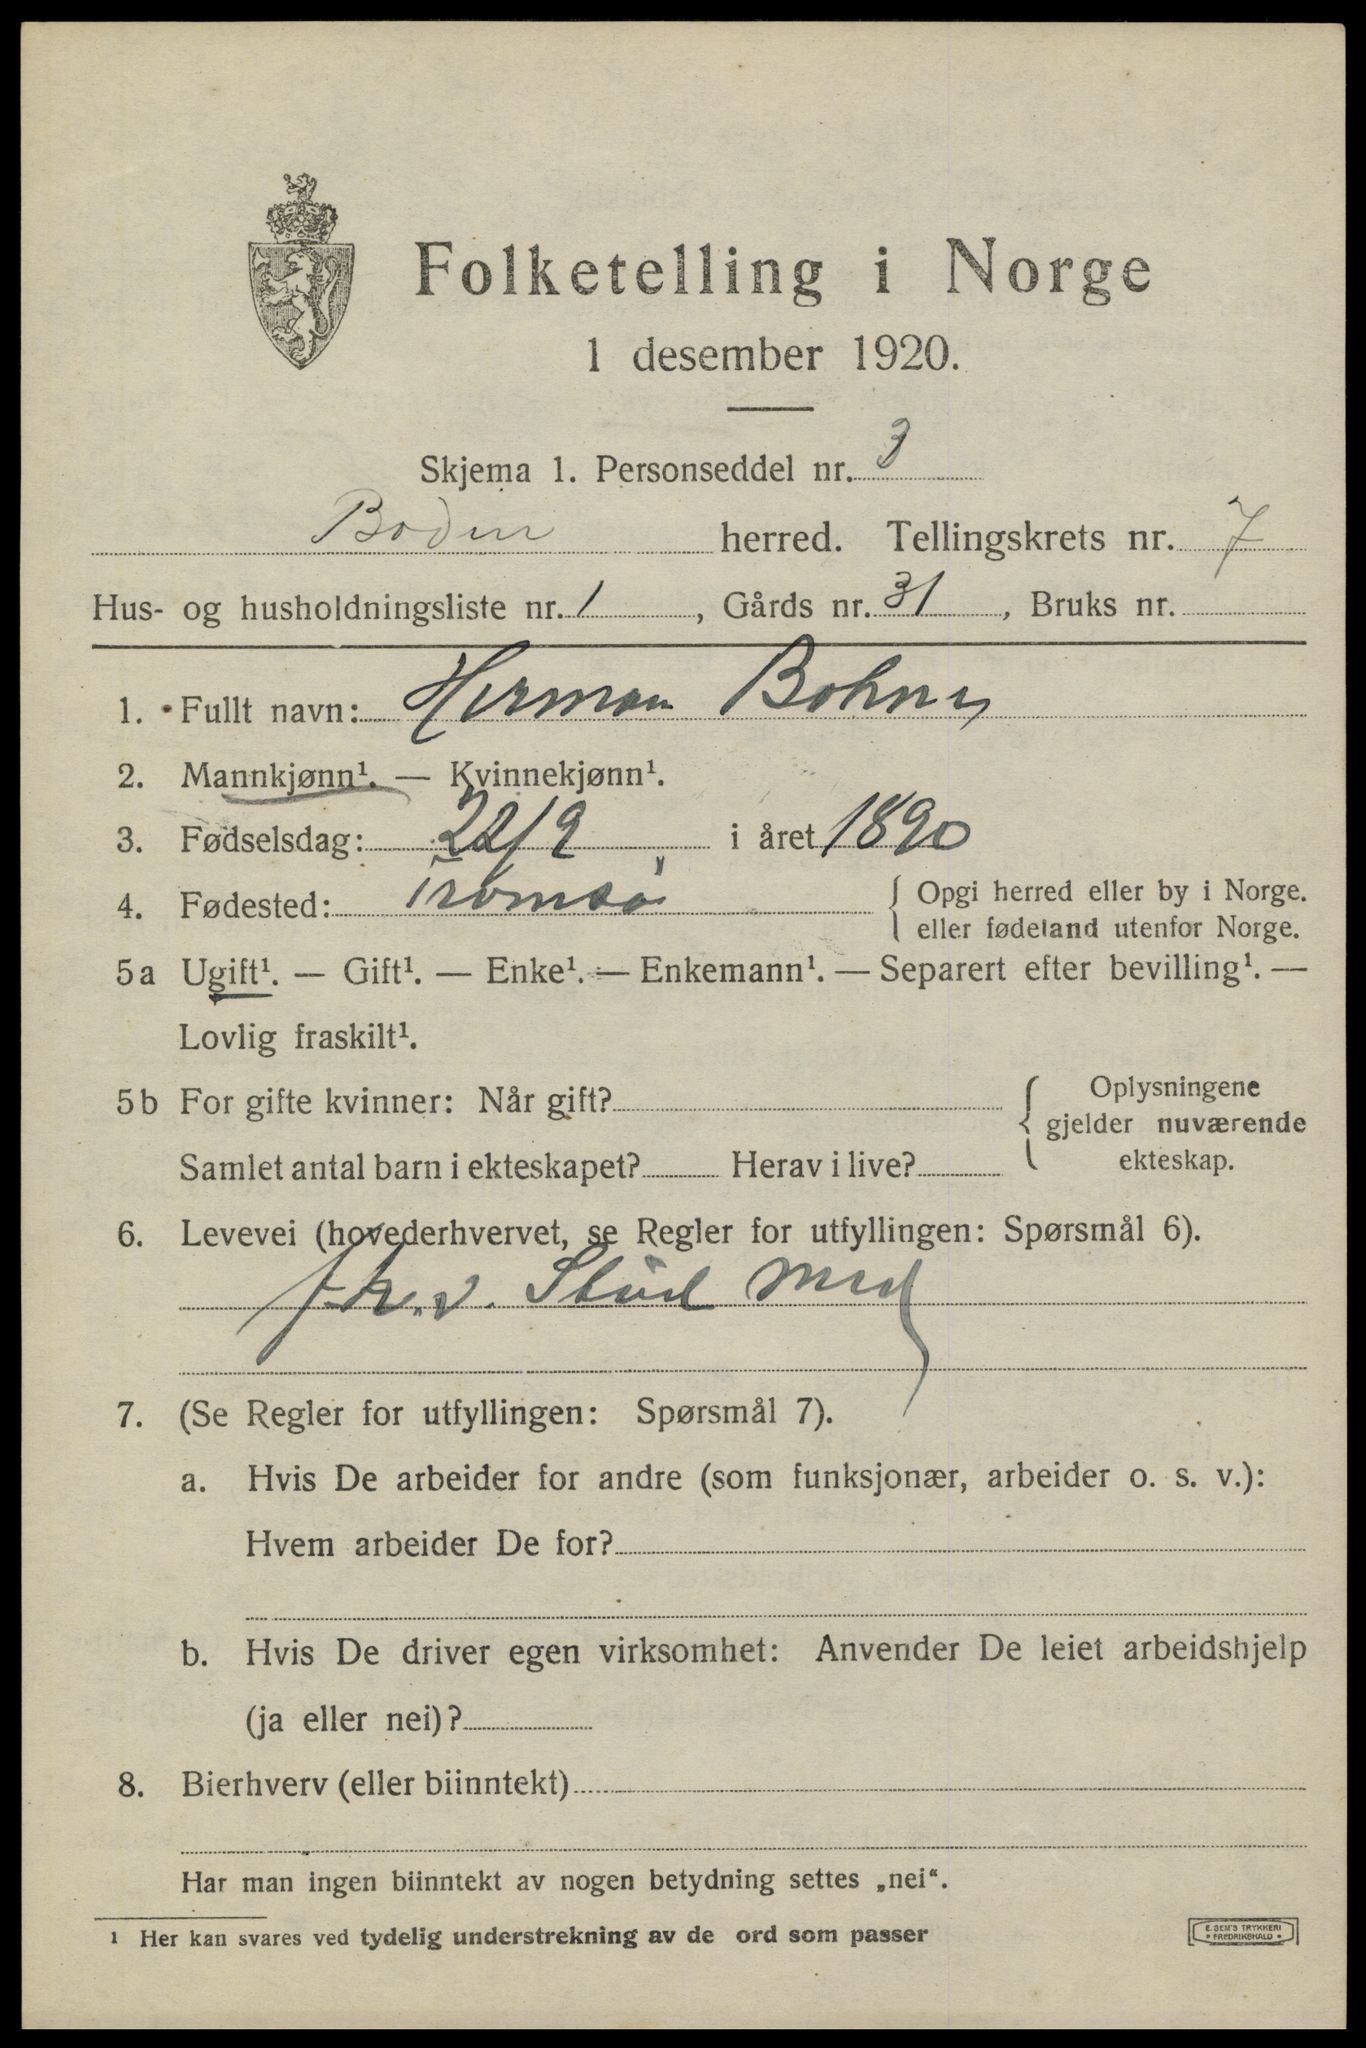 Folketelling i Norge
1 desember 1920.
Skjema 1. Personseddel nr. 3
Bodin herred. Tellingskrets nr. 7
Hus- og husholdningsliste nr. 1, Gårds nr. 31, Bruks nr.
1. Fullt navn: Herman
2. Mannkjønn¹. — Kvinnekjønn¹.
3. Fødselsdag: 22/9 i året 1890
4. Fødested: Tromsø { Opgi herred eller by i Norge.
eller fødeland utenfor Norge.
5a Ugift¹. — Gift¹. — Enke¹. — Enkemann¹. — Separert efter bevilling¹. —
Lovlig fraskilt¹.
5b For gifte kvinner: Når gift? { Oplysningene
gjelder nuværende
Samlet antal barn i ekteskapet? Herav i live? ekteskap.
6. Levevei (hovederhvervet, se Regler for utfyllingen: Spørsmål 6).
Stud Med
7. (Se Regler for utfyllingen: Spørsmål 7).
a. Hvis De arbeider for andre (som funksjonær, arbeider o. s. v.):
Hvem arbeider De for?
b. Hvis De driver egen virksomhet: Anvender De leiet arbeidshjelp
(ja eller nei)?
8. Bierhverv (eller biinntekt)
Har man ingen biinntekt av nogen betydning settes „nei“.
¹ Her kan svares ved tydelig understrekning av de ord som passer
E. SEM'S TRYKKERI
• FREDRIKSHALD •